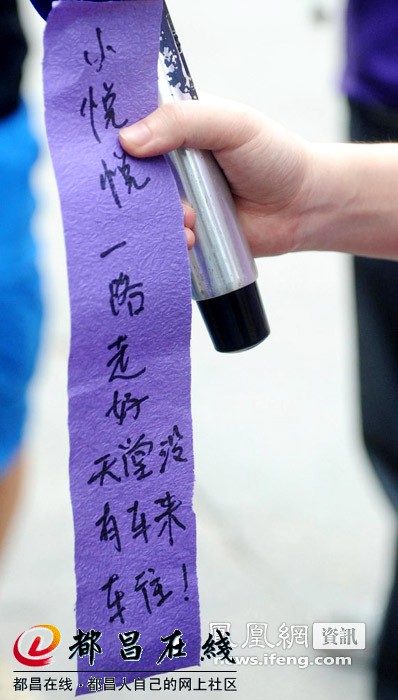 小悦悦
一路走好
天堂没
有车来
车往！
都昌在线
都昌在线·都昌人自己的网上社区
鳳凰網 資訊
news.ifeng.com